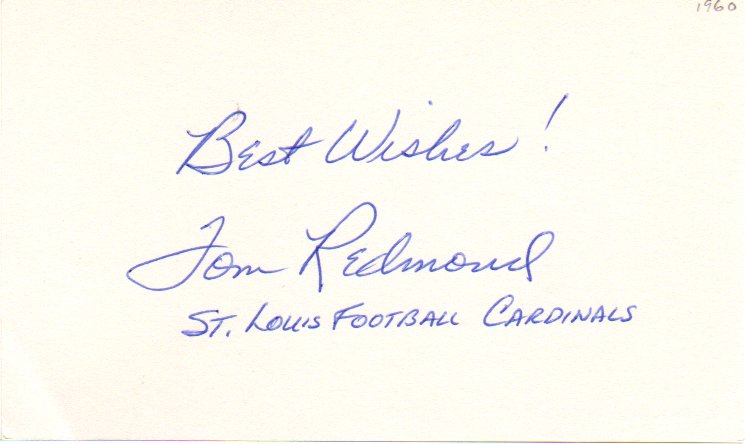 1960
Best Wishes!
Tom Redmond
St. Louis Football Cardinals